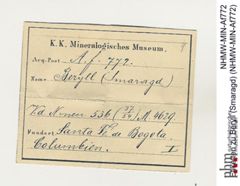 K. K. Mineralogisches Museum.
Acq.-Post A. f. 772.
Name Beryll (Smaragd)
Fundort Santa Fé de Bogota
Columbien. I
NHMW-MIN-Af772
zu Beryll (Smaragd) (NHMW-MIN-Af772)